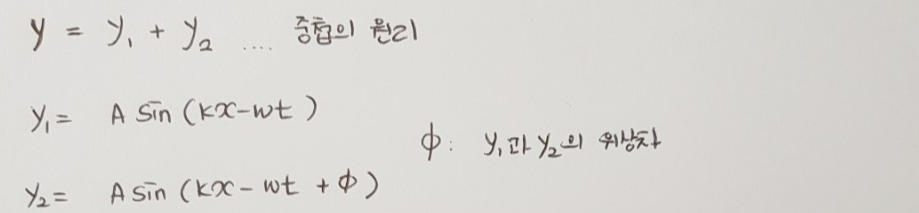 y = y₁ + y₂ .... 중첩의 원리
y₁ = A sin (kx-wt)
ϕ: y₁과 y₂의 위상차
y₂ = A sin (kx - wt + ϕ)